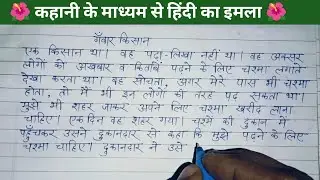 कहानी के माध्यम से हिंदी का इमला
गँवार किसान
एक किसान था। वह पढ़ा-लिखा नहीं था। वह अक्सर
लोगों को अखबार व किताबें पढ़ने के लिए चश्मा लगाते
देखा करता था। वह सोचता, अगर मेरे पास भी चश्मा
होता, तो मैं भी इन लोगों की तरह पढ़ सकता था।
मुझे भी शहर जाकर अपने लिए चश्मा खरीद लाना
चाहिए। एक दिन वह शहर गया। चश्मे की दुकान में
पहुँचकर उसने दुकानदार से कहा कि मुझे पढ़ने के लिए
चश्मा चाहिए। दुकानदार ने उसे